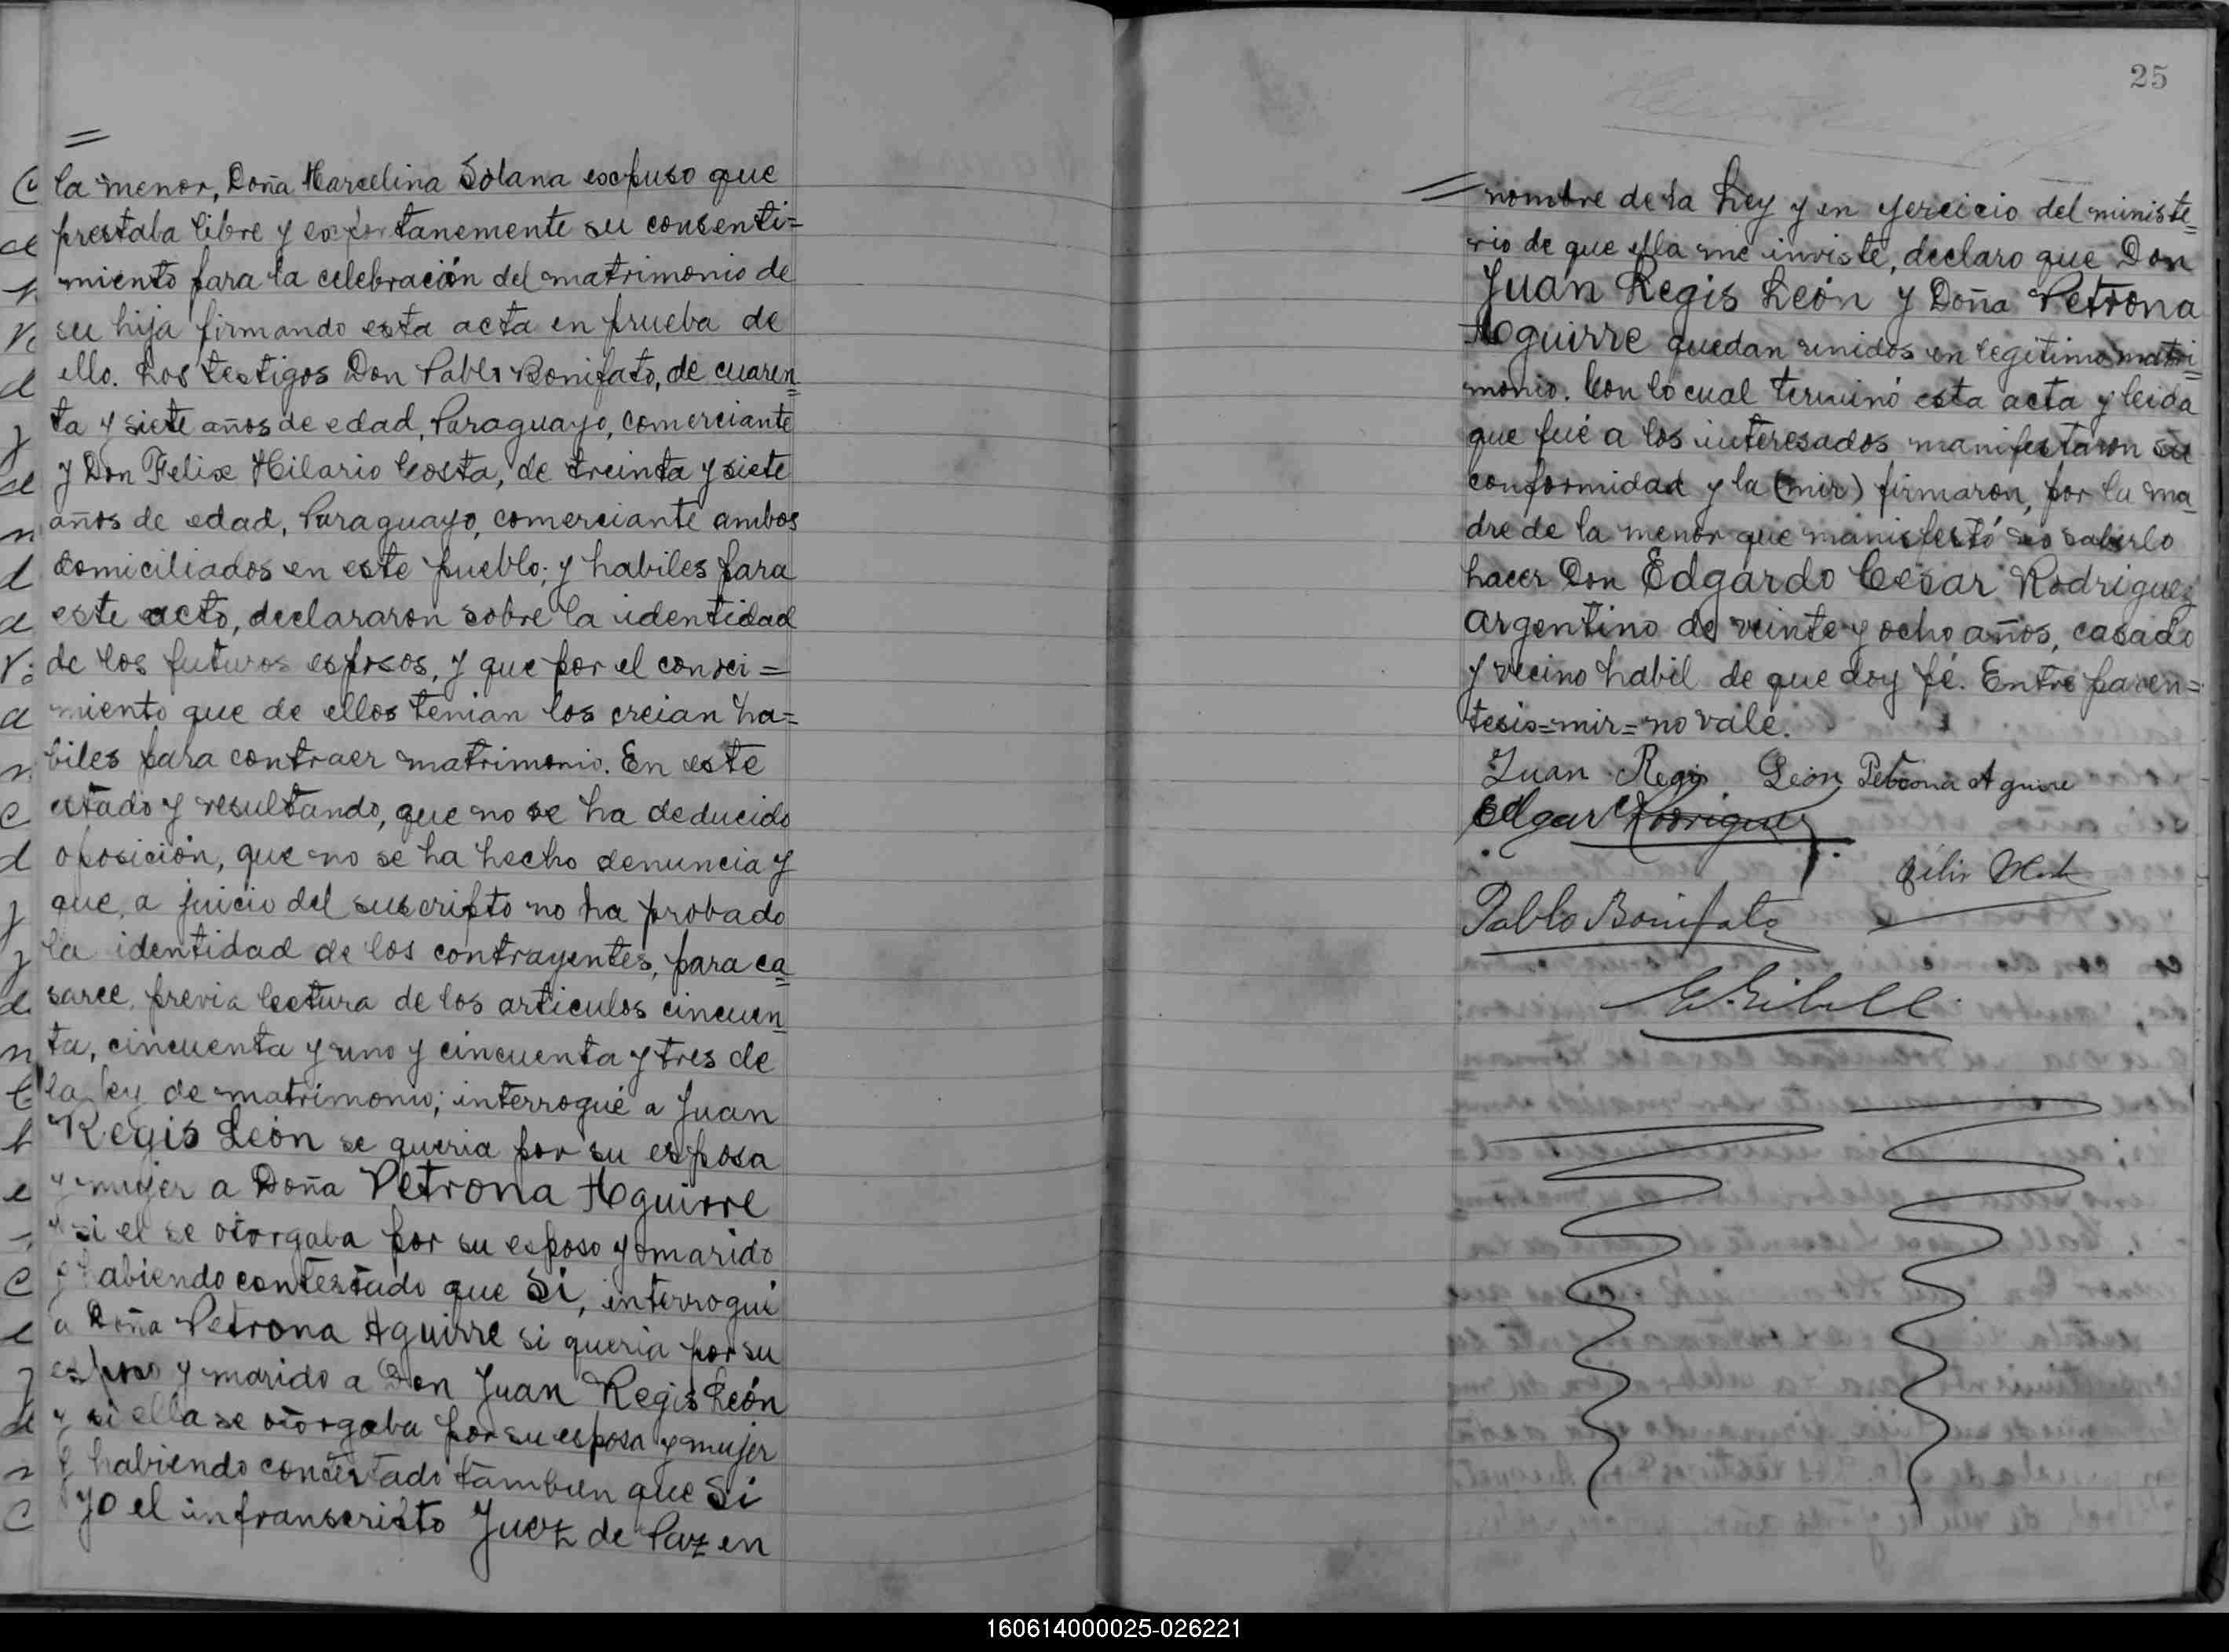 =
la menor, Doña Marcelina Solana excpuso que
prestaba libre y exportanemente su consenti=
miento para la celebración del matrimonio de
su hija firmando esta acta en prueba de
ello. Los testigos Don Pablo Bonifato, de cuaren=
ta y siete años de edad, Paraguayo, comerciante
y Don Felix Hilario Costa, de treinta y siete
años de edad, Paraguayo, comerciante ambos
domiciliados en este pueblo; y habiles para
este acto, declararon sobre la identidad
de los futuros esposos, y que por el conoci=
miento que de ellos tenian los creian ha=
biles para contraer matrimonio. En este
estado y resultando, que no se ha deducido
oposición, que no se ha hecho denuncia y
que, a juicio del suscripto no ha probado
la identidad de los contrayentes, para ca=
sarce, previa lectura de los articulos cincuen=
ta, cincuenta y uno y cincuenta y tres de
la ley de matrimonio; interrogué a Juan
Regis León se queria por su esposa
y mujer a Doña Petrona Aguirre
y si el se otorgaba por su esposo y marido
y habiendo contestado que Si, interrogué
a Doña Petrona Aguirre si queria por su
esposo y marido a Don Juan Regis León
y si ella se otorgaba por su esposa y mujer
y habiendo contestado tambien que Si
yo el infranscripto Juez de Paz en
25
= nombre de la Ley y en yercicio del ministe=
rio de que ella me inviste, declaro que Don
Juan Regis León y Doña Petrona
Aguirre quedan unidos en legitimo matri=
monio. Con lo cual terminó esta acta y leida
que fué a los interesados manifestaron su
conformidad y la (mir) firmaron, por la ma=
dre de la menor que manisfestó no saberlo
hacer Don Edgardo Cesar Rodriguez
argentino de veinte y ocho años, casado
y vecino habil de que doy fé. Entre paren=
tesis=mir=no vale.
Juan Regis León Petrona Aguirre
Edgar C Rodriguez
Pablo Bonifato
160614000025-026221